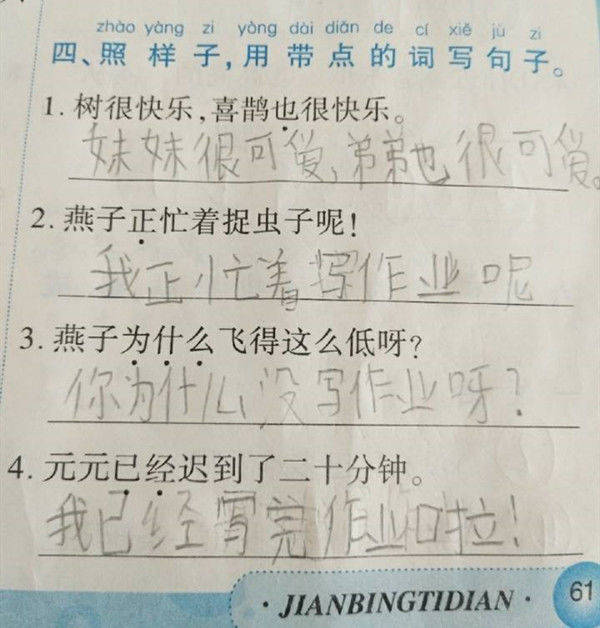 zhào yàng zi yòng dài diǎn de cí xiě jù zi
四、照样子，用带点的词写句子。
1. 树很快乐，喜鹊也很快乐。
妹妹很可爱，弟弟也很可爱。
2. 燕子正忙着捉虫子呢！
我正忙着写作业呢
3. 燕子为什么飞得这么低呀？
你为什么没写作业呀？
4. 元元已经迟到了二十分钟。
我已经写完作业啦！
· JIANBINGTIDIAN · 61